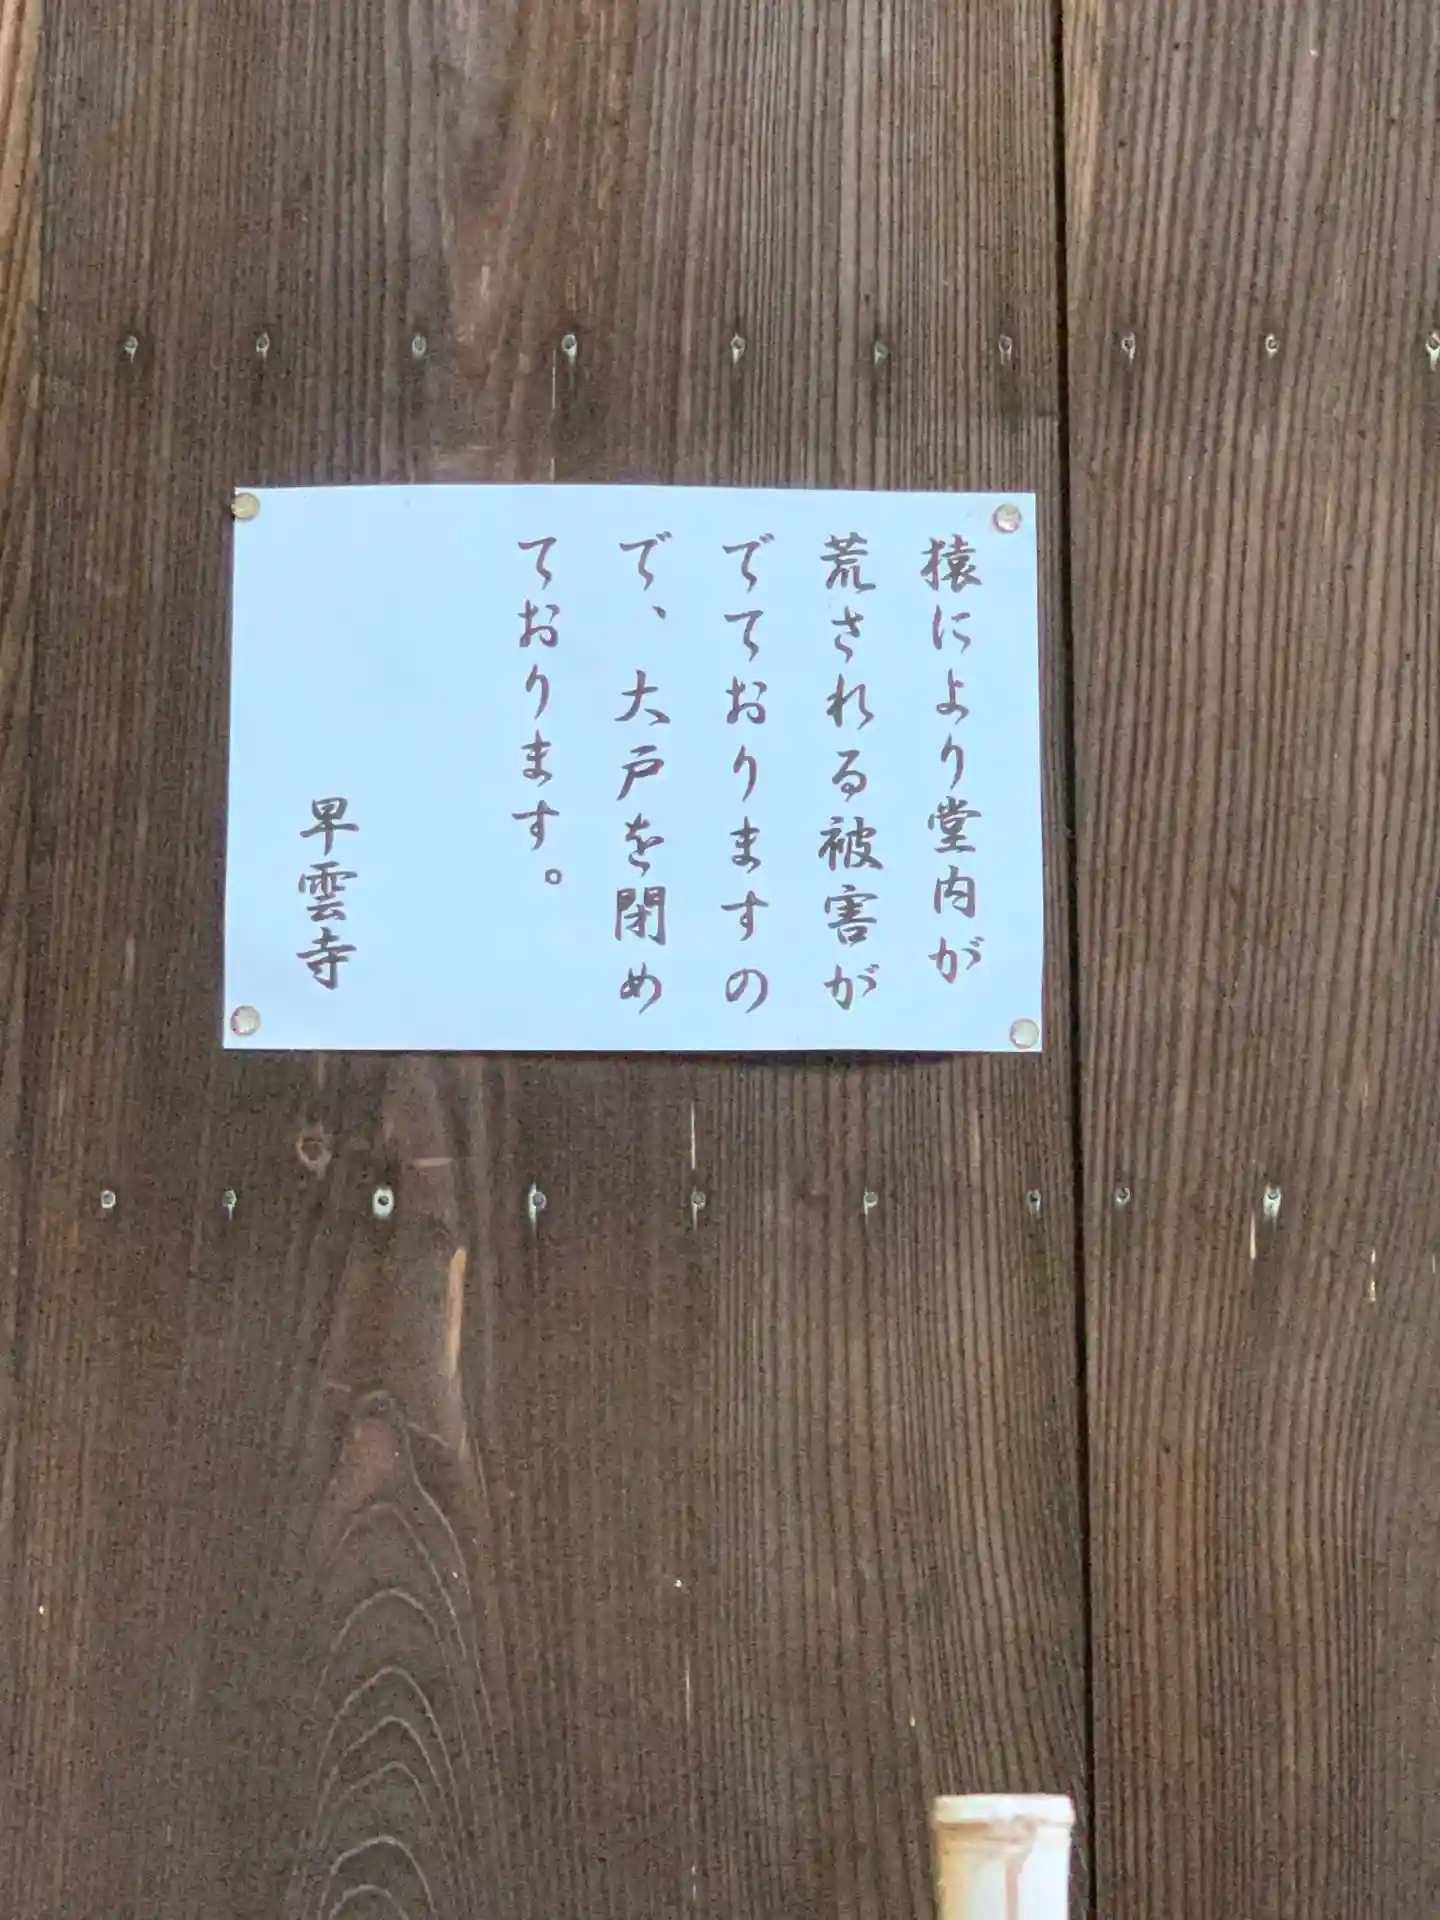 猿により堂内が
荒される被害が
でておりますの
で、大戸を閉め
ております。
早雲寺